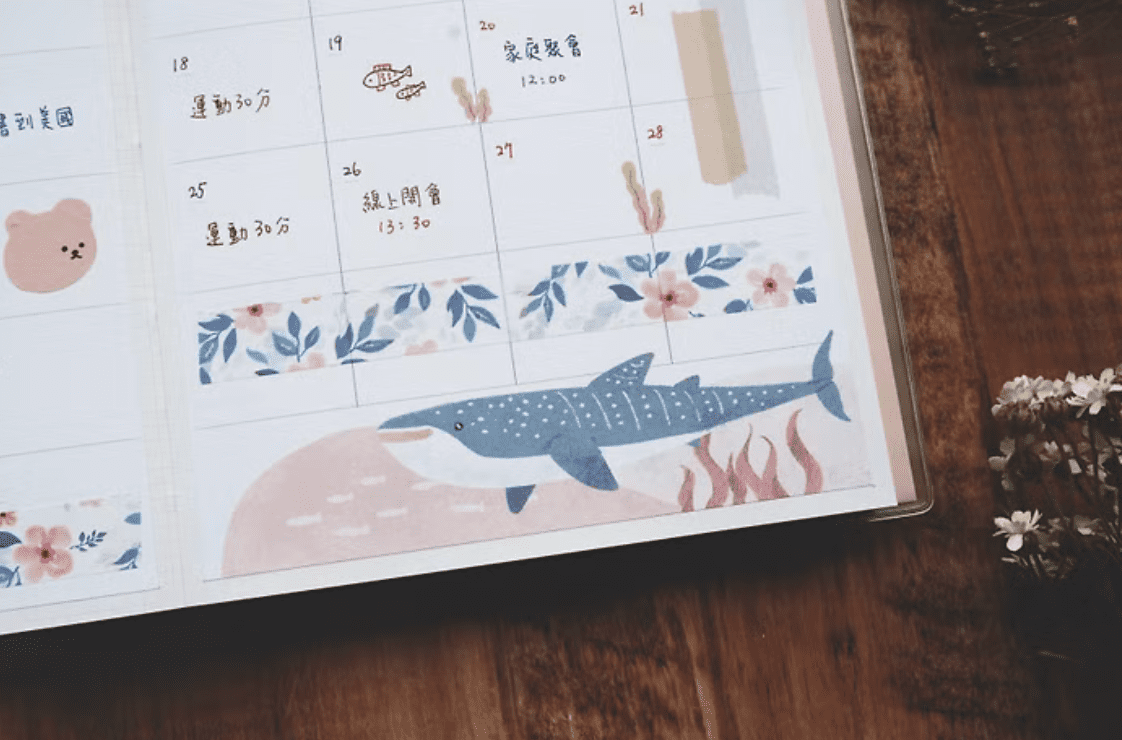 18
運動30分
19
20
家庭聚會
12:00
21
書到美國
25
運動30分
26
線上開會
13:30
27
28